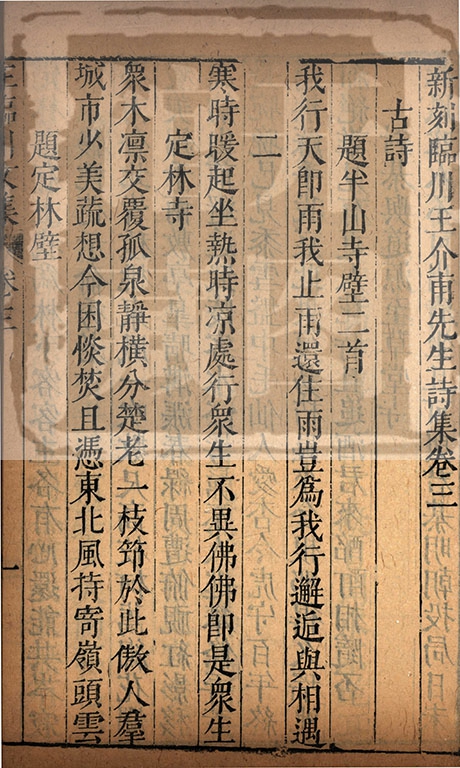 新刻臨川王介甫先生詩集卷三
古詩
題半山寺壁二首
我行天卽雨我止雨還住雨豈爲我行邂逅與相遇
二
寒時暖起坐熱時凉處行衆生不異佛佛卽是衆生
定林寺
衆木凛交覆孤泉靜橫分楚老一枝筇於此傲人羣
城市少美蔬想今困惔焚且憑東北風持寄嶺頭雲
題定林壁
王臨川文集 卷三 一